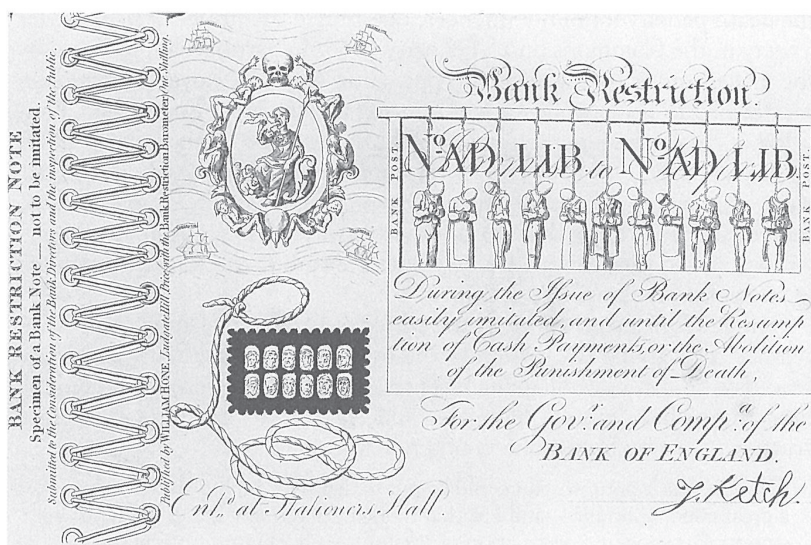 BANK RESTRICTION NOTE
Specimen of a Bank Note — not to be imitated.
Submitted to the Consideration of the Bank Directors and the inspection of the Public.
Published by WILLIAM HONE, Ludgate Hill Price with the Bank Restriction Barometer One Shilling.
Bank Restriction.
BANK POST.
No. AD LIB No. AD LIB
BANK POST.
During the Issue of Bank Notes
easily imitated, and until the Resump
tion of Cash Payments, or the Abolition
of the Punishment of Death,
For the Govr. and Compa. of the
BANK OF ENGLAND.
J. Ketch.
Entd. at Stationers Hall.